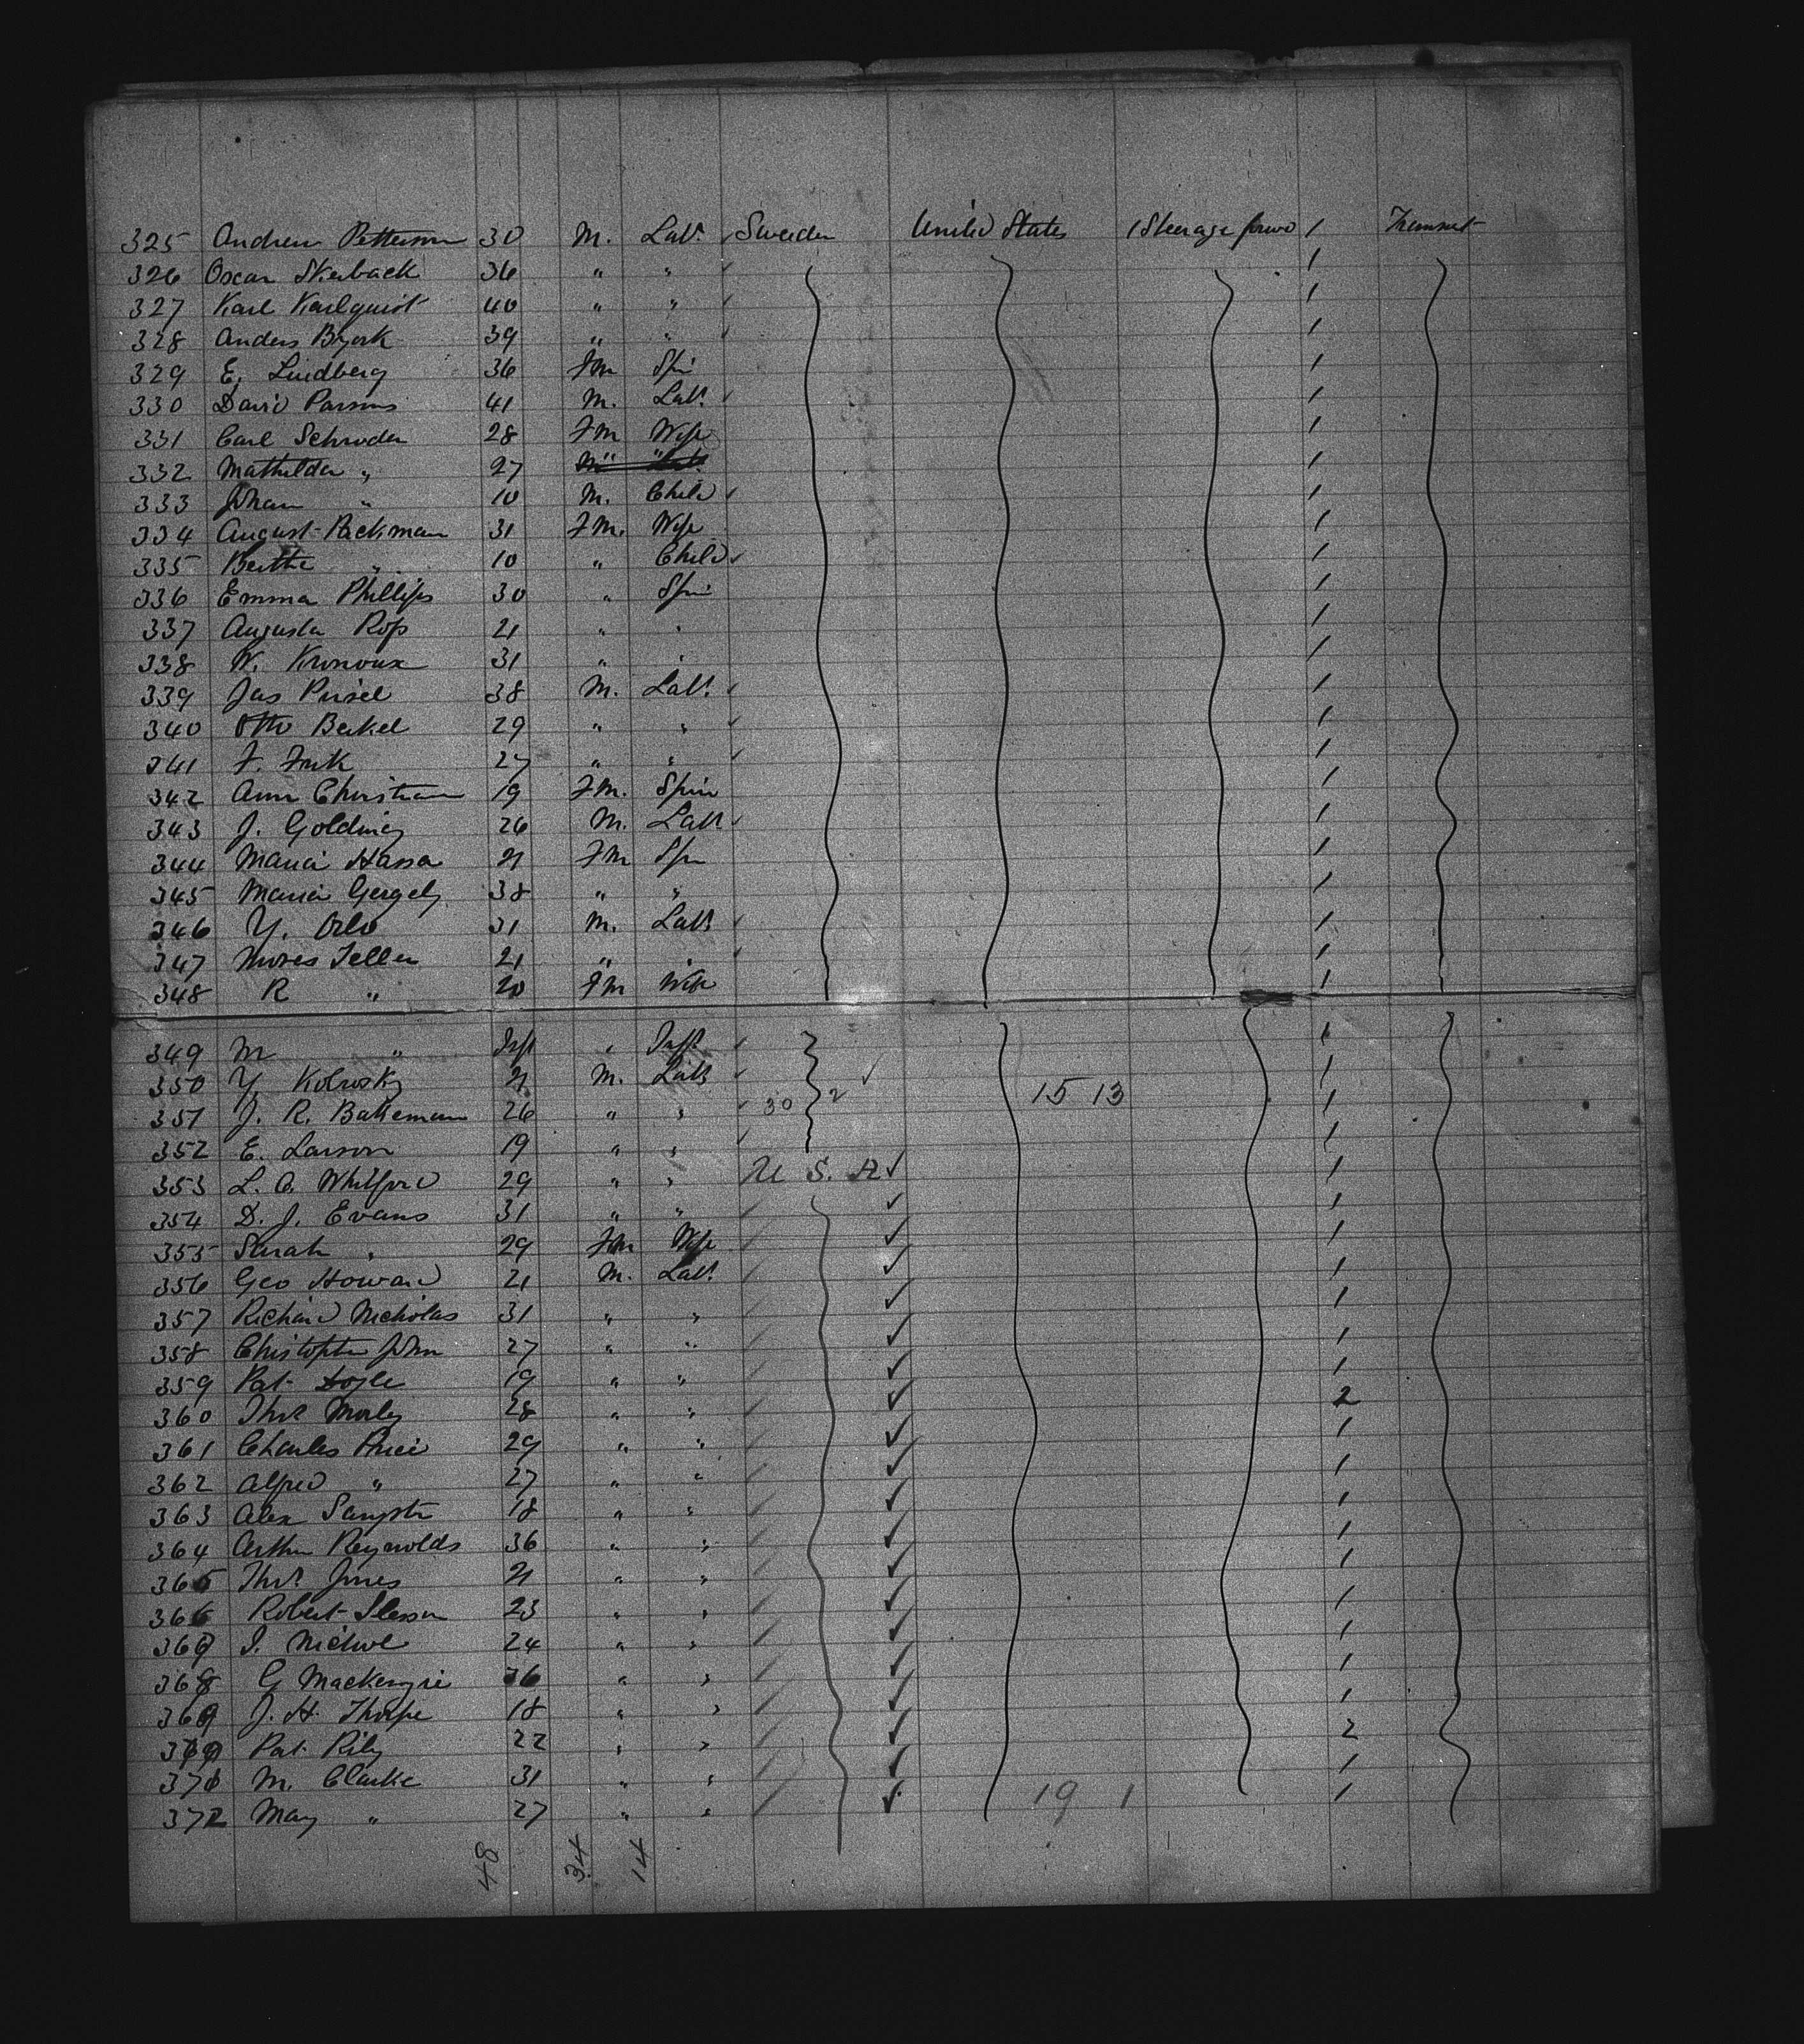 325 Andrew Petterson 30 M. Labr Sweden United States Steerage forwd 1 Transit
326 Oscar Skerback 36 " " 1
327 Karl Karlquist 40 " " 1
328 Anders Bjork 39 " " 1
329 E. Lindberg 36 Fm Spin 1
330 David Parsons 41 M. Labr 1
331 Carl Schroder 28 Fm Wife 1
332 Mathilda " 27 1
333 Johan " 10 M. Child 1
334 August Packman 31 Fm. Wife 1
335 Berthe " 10 " Child 1
336 Emma Phillips 30 " Spin 1
337 Augusta Ross 21 " " 1
338 W. 31 " " 1
339 Jas 38 M. Labr 1
340 Otto Berkel 29 " " 1
341 F. 27 " " 1
342 Ann Christian 19 Fm. Spin 1
343 J. Golding 26 M. Labr 1
344 Maria Hassa 21 Fm Spin 1
345 Maria Gergely 38 " " 1
346 Y. Orlo 31 M. Labr 1
347 Moses Teller 21 " " 1
348 R " 20 Fm Wife 1
349 M " Inft " Inft 1
350 Y Kobrosky 21 M. Labr 1
351 J. R. Bakeman 26 " " 30 2 15 13 1
352 E. Larson 19 " " 1
353 L. C. Whitford 29 " " U. S. A 1
354 D. J. Evans 31 " " 1
355 Sarah " 29 Fm Wife 1
356 Geo Howard 21 M. Labr 1
357 Richard Nicholas 31 " " 1
358 Christopher John 27 " " 1
359 Pat Doyle 19 " " 1
360 Thos Morley 28 " " 2
361 Charles Price 29 " " 1
362 Alfred " 27 " " 1
363 Alex Sangster 18 " " 1
364 Arthur Reynolds 36 " " 1
365 Thos Jones 21 " " 1
366 Robert 23 " " 1
367 24 " " 1
368 G Mackenzie 36 " " 1
369 J. H. Thorpe 18 " " 1
370 Pat Rily 22 " " 2
371 M. Clarke 31 " " 1
372 May " 27 " " 19 1 1
48 34 14